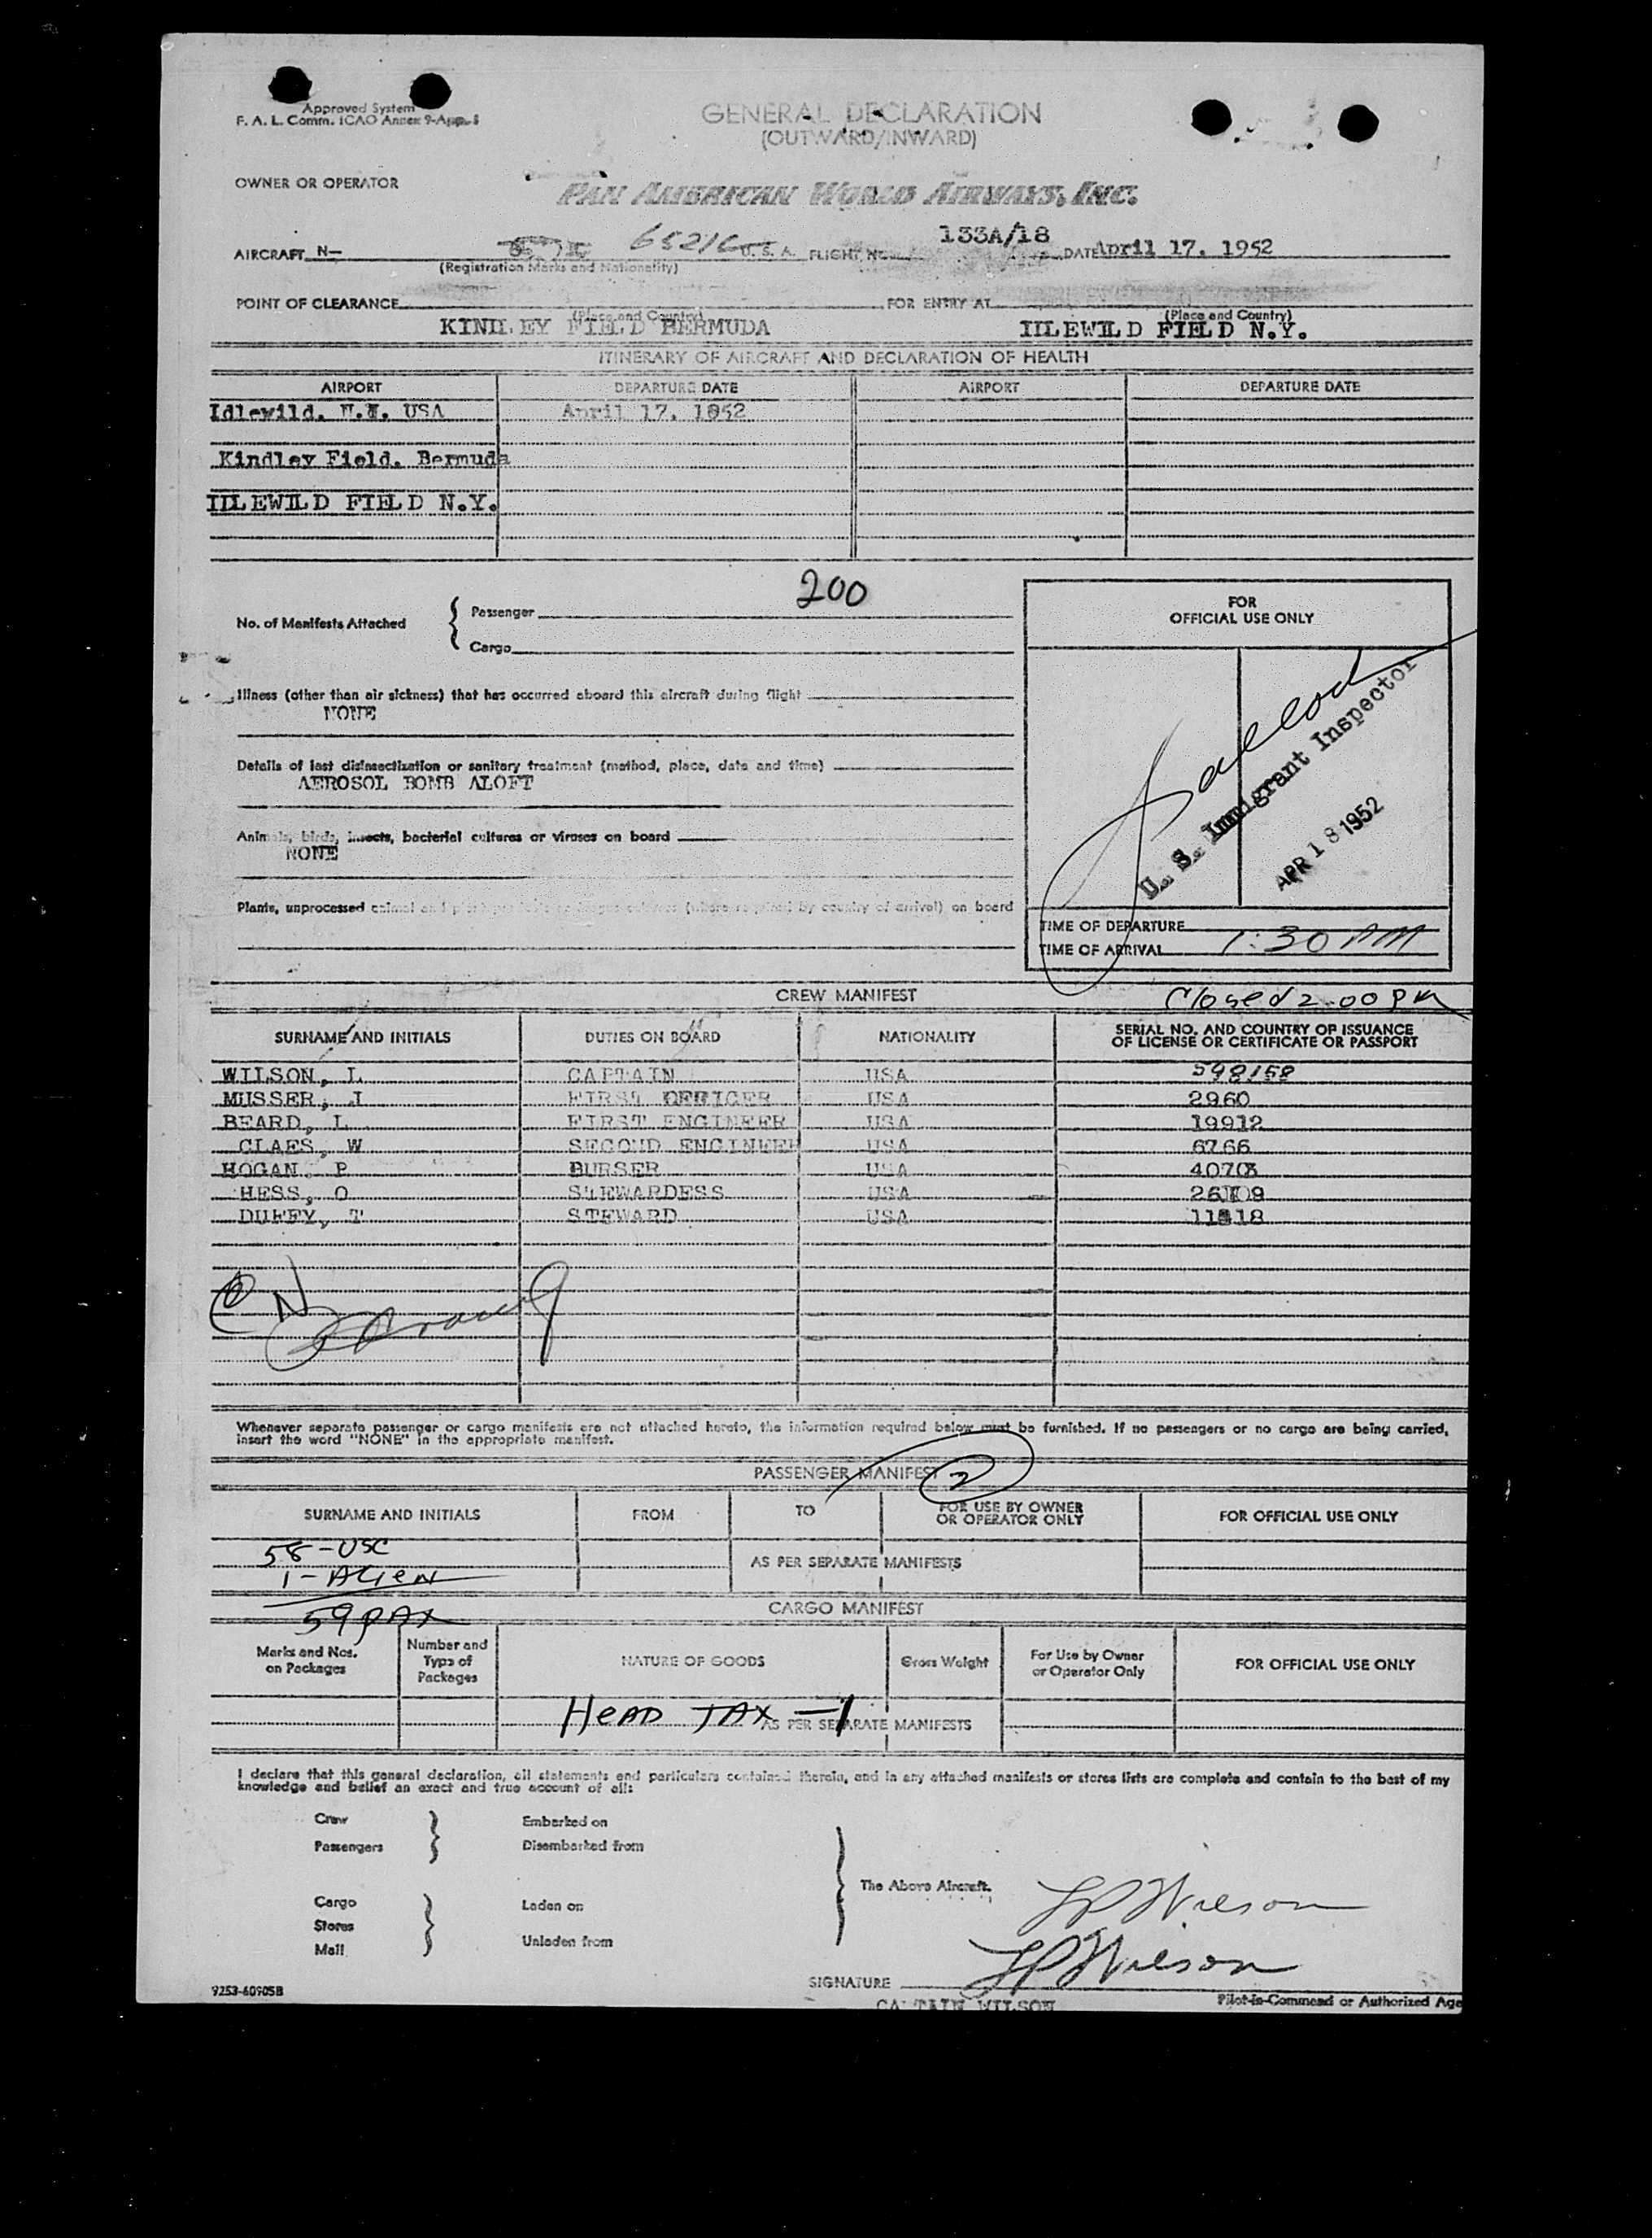 Approved System
F. A. L. Comm. ICAO Annex 9-App. 1
GENERAL DECLARATION
(OUTWARD/INWARD)
OWNER OR OPERATOR
PAN AMERICAN WORLD AIRWAYS, INC.
AIRCRAFT N— 6521C U. S. A. FLIGHT NO. 133A/18 DATE April 17. 1952
(Registration Marks and Nationality)
POINT OF CLEARANCE FOR ENTRY AT
(Place and Country) (Place and Country)
KINDLEY FIELD BERMUDA IDLEWILD FIELD N.Y.
ITINERARY OF AIRCRAFT AND DECLARATION OF HEALTH
AIRPORT DEPARTURE DATE AIRPORT DEPARTURE DATE
Idlewild. N.Y. USA April 17. 1952
Kindley Field. Bermuda
IDLEWILD FIELD N.Y.
200
No. of Manifests Attached { Passenger
Cargo
FOR
OFFICIAL USE ONLY
Illness (other than air sickness) that has occurred aboard this aircraft during flight
NONE
Details of last disinsectization or sanitary treatment (method, place, date and time)
AEROSOL BOMB ALOFT
Animals, birds, insects, bacterial cultures or viruses on board
NONE
Plants, unprocessed animal and (where required by country of arrival) on board
U. S. Immigrant Inspector
APR 18 1952
TIME OF DEPARTURE
TIME OF ARRIVAL 1:30 PM
Closed 2:00 PM
CREW MANIFEST
SURNAME AND INITIALS DUTIES ON BOARD NATIONALITY SERIAL NO. AND COUNTRY OF ISSUANCE
OF LICENSE OR CERTIFICATE OR PASSPORT
WILSON, L CAPTAIN USA 598158
MUSSER, J FIRST OFFICER USA 2960
BEARD, L FIRST ENGINEER USA 19912
CLAES, W SECOND ENGINEER USA 6766
HOGAN P BURSER USA 40703
HESS, O STEWARDESS USA
DUFFY, T STEWARD USA
Whenever separate passenger or cargo manifests are not attached hereto, the information required below must be furnished. If no passengers or no cargo are being carried,
insert the word "NONE" in the appropriate manifest.
PASSENGER MANIFEST 2
SURNAME AND INITIALS FROM TO FOR USE BY OWNER
OR OPERATOR ONLY FOR OFFICIAL USE ONLY
58-USC
1-ALIEN
AS PER SEPARATE MANIFESTS
59 PAX
CARGO MANIFEST
Marks and Nos.
on Packages Number and
Type of
Packages NATURE OF GOODS Gross Weight For Use by Owner
or Operator Only FOR OFFICIAL USE ONLY
HEAD TAX -1
AS PER SEPARATE MANIFESTS
I declare that this general declaration, all statements and particulars contained therein, and in any attached manifests or stores lists are complete and contain to the best of my
knowledge and belief an exact and true account of all:
Crew Embarked on
Passengers Disembarked from
The Above Aircraft.
Cargo Laden on
Stores
Mail Unladen from
LP Wilson
SIGNATURE LP Wilson
9253-60905B CAPTAIN WILSON Pilot-in-Command or Authorized Age